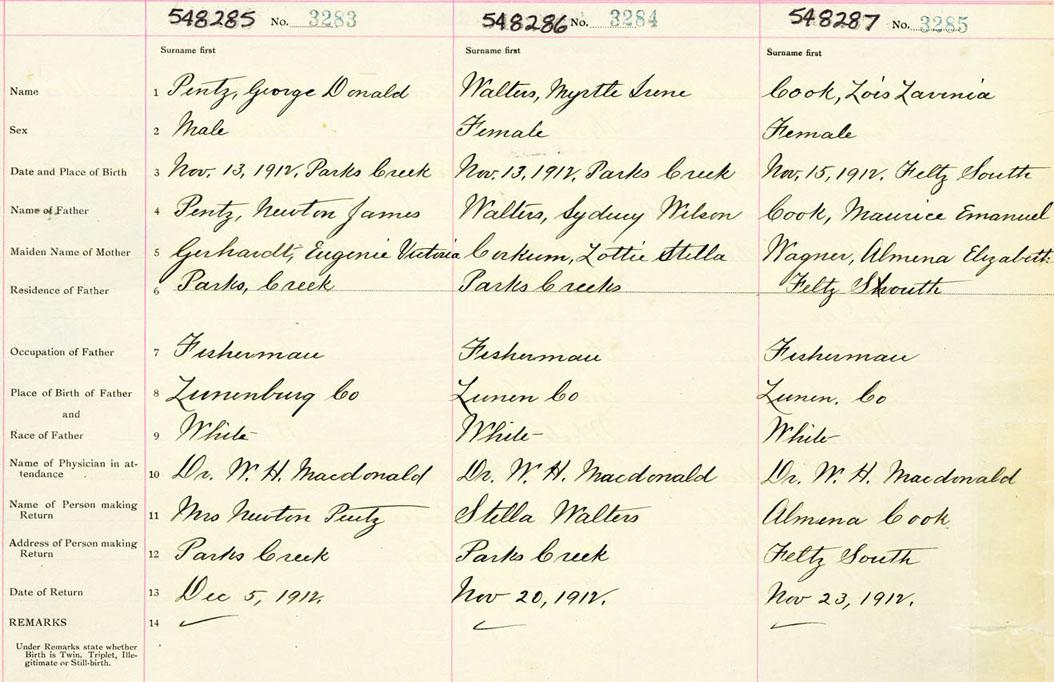 548285 No. 3283 548286 No. 3284 548287 No. 3285
Surname first Surname first Surname first
Name 1 Pentz, George Donald Walters, Myrtle Irene Cook, Lois Lavinia
Sex 2 Male Female Female
Date and Place of Birth 3 Nov. 13, 1912, Parks Creek Nov. 13, 1912, Parks Creek Nov. 15, 1912. Feltz South
Name of Father 4 Pentz, Newton James Walters, Sydney Wilson Cook, Maurice Emanuel
Maiden Name of Mother 5 Gerhardt, Eugenie Victoria Corkum, Lottie Stella Wagner, Almena Elizabeth
Residence of Father 6 Parks, Creek Parks Creeks Feltz South
Occupation of Father 7 Fisherman Fisherman Fisherman
Place of Birth of Father 8 Lunenburg Co Lunen Co Lunen. Co
and
Race of Father 9 White White White
Name of Physician in at-
tendance 10 Dr. W. H. Macdonald Dr. W. H. Macdonald Dr. W. H. Macdonald
Name of Person making
Return 11 Mrs Newton Pentz Stella Walters Almena Cook
Address of Person making
Return 12 Parks Creek Parks Creek Feltz South
Date of Return 13 Dec 5, 1912. Nov 20, 1912. Nov 23, 1912.
REMARKS 14
Under Remarks state whether
Birth is Twin, Triplet, Ille-
gitimate or Still-birth.